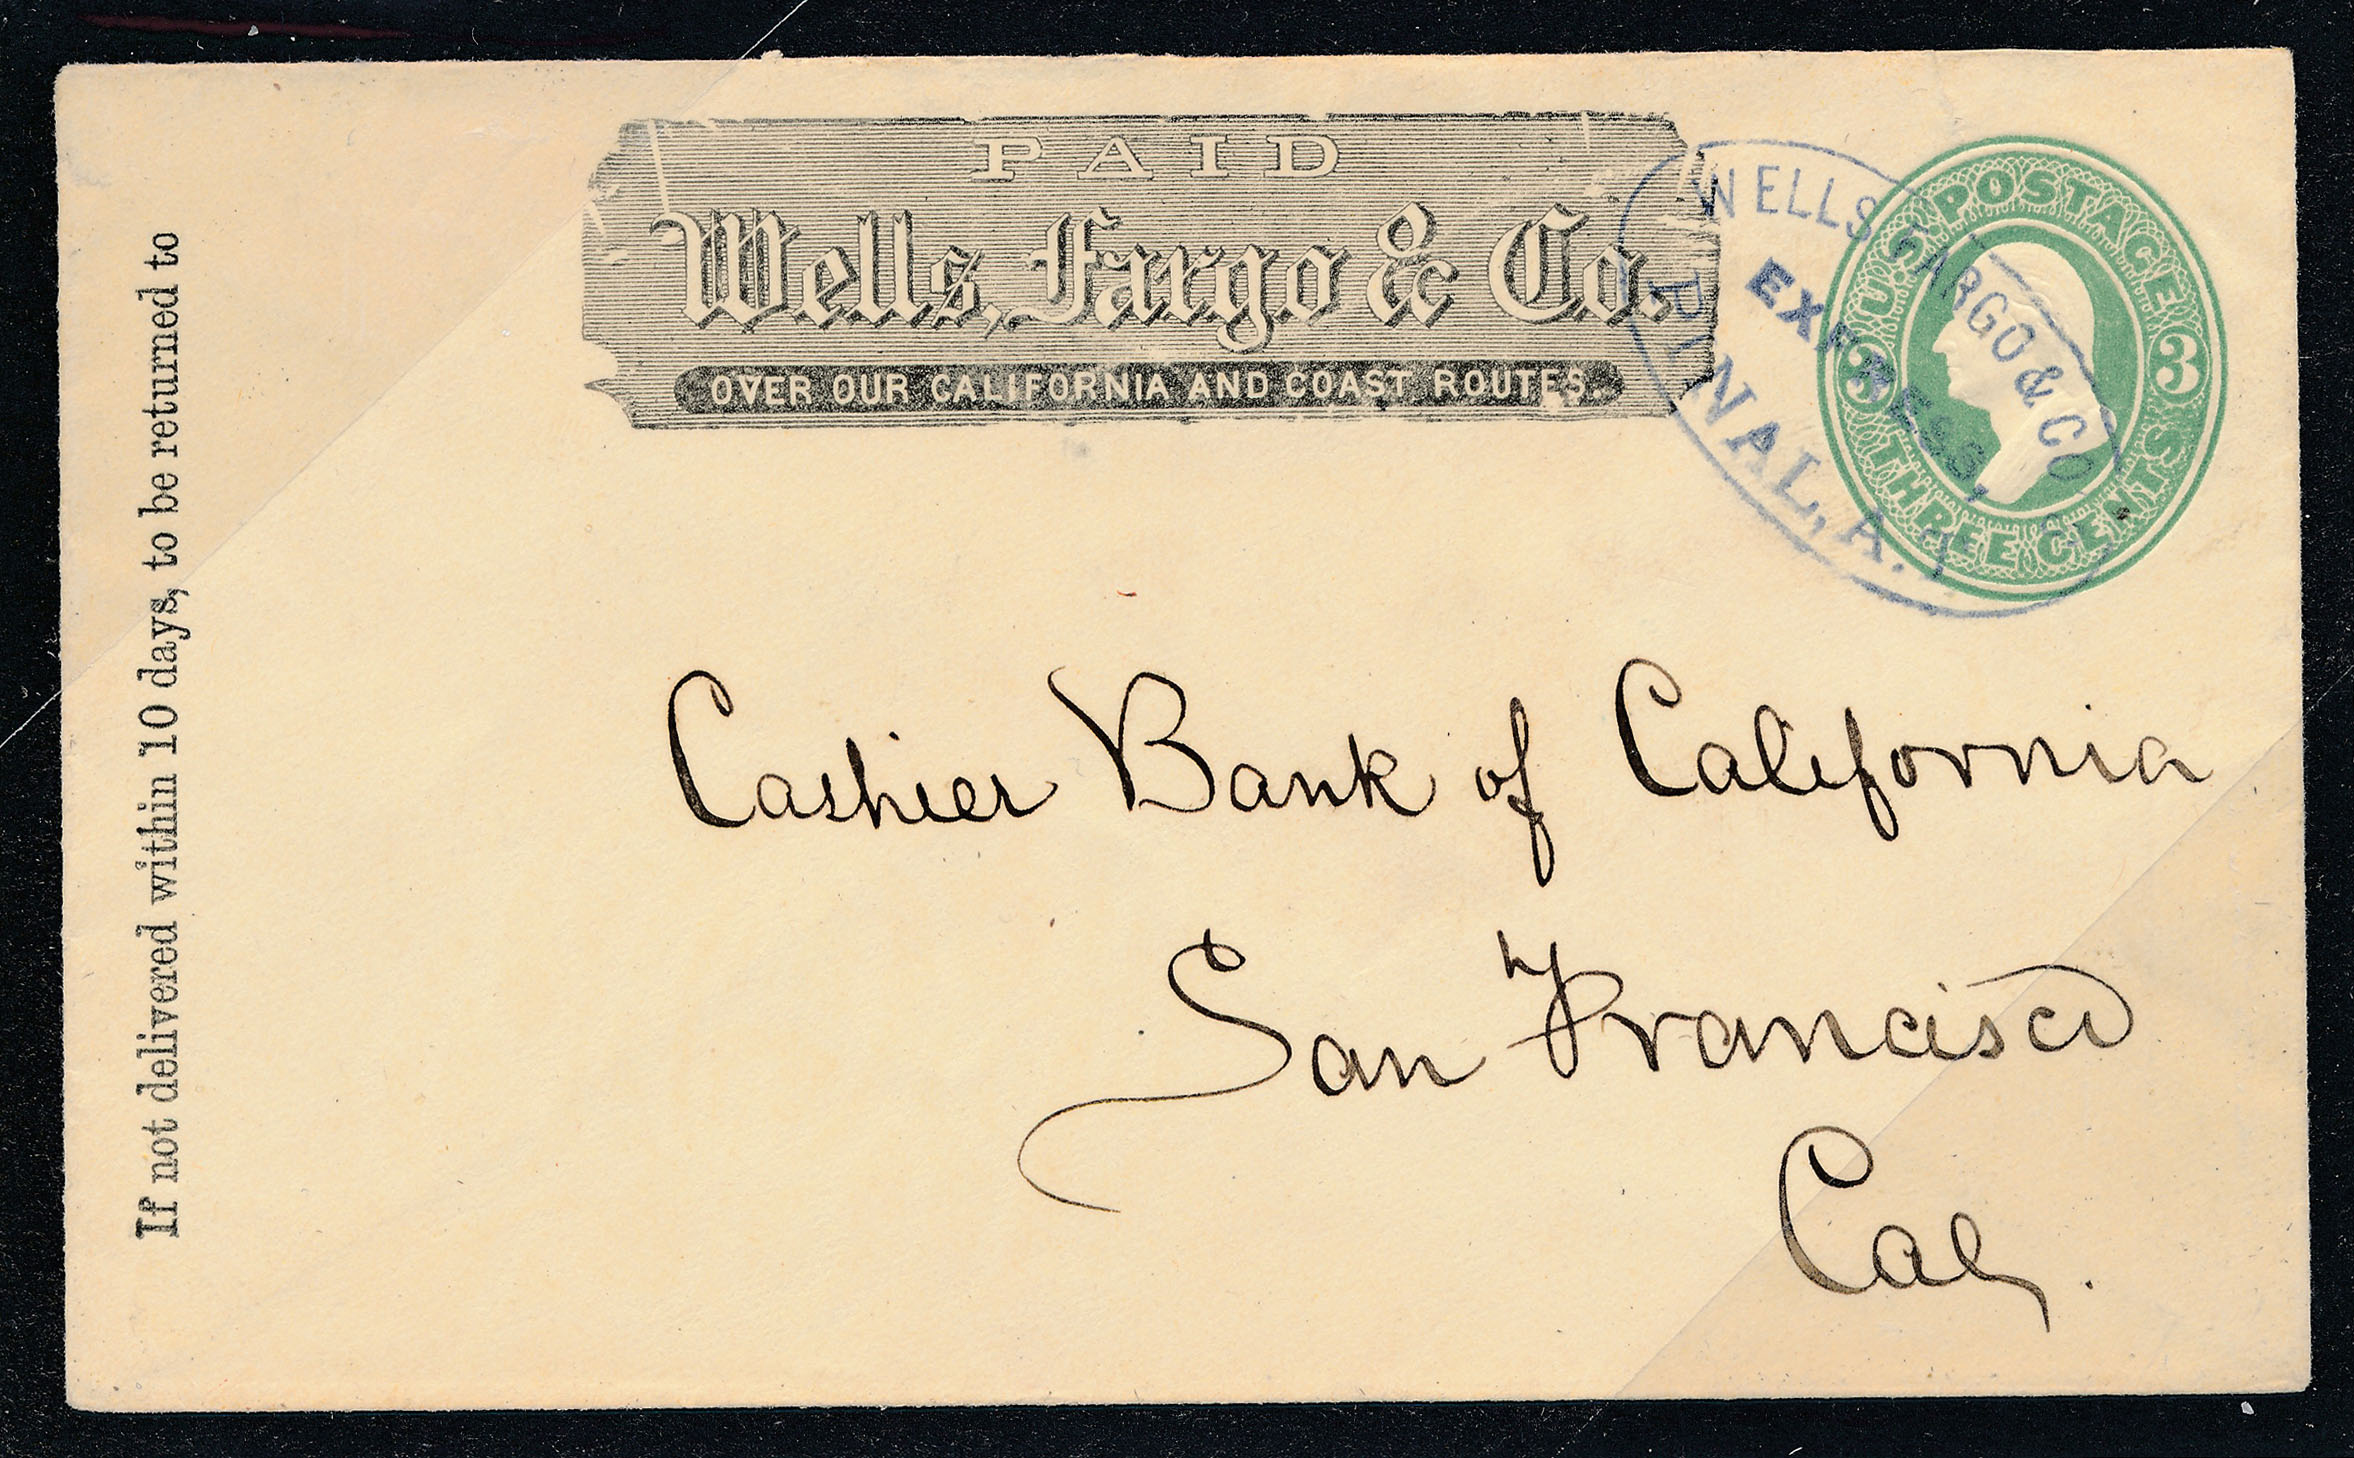 PAID
Wells, Fargo & Co.
OVER OUR CALIFORNIA AND COAST ROUTES.
WELLS FARGO & CO.
EXPRESS,
PINAL, A. T.
U.S. POSTAGE
3 3
THREE CENTS
If not delivered within 10 days, to be returned to
Cashier Bank of California
San Francisco
Cal.